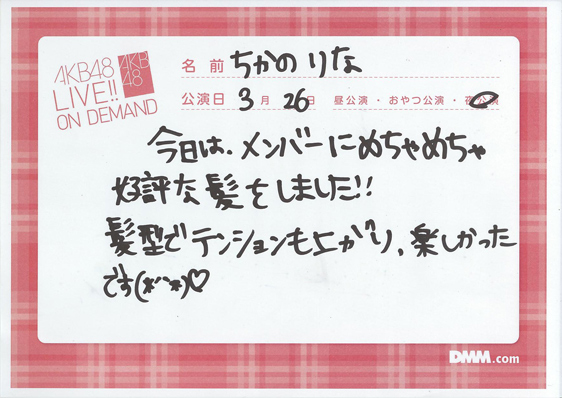 AKB48
LIVE!!
ON DEMAND
AKB
48
名前 ちかの りな
公演日 3月26日 昼公演・おやつ公演・夜公演
今日は、メンバーにめちゃめちゃ
好評な髪をしました!!
髪型でテンションも上がり、楽しかった
です(*´`*)♡
DMM.com